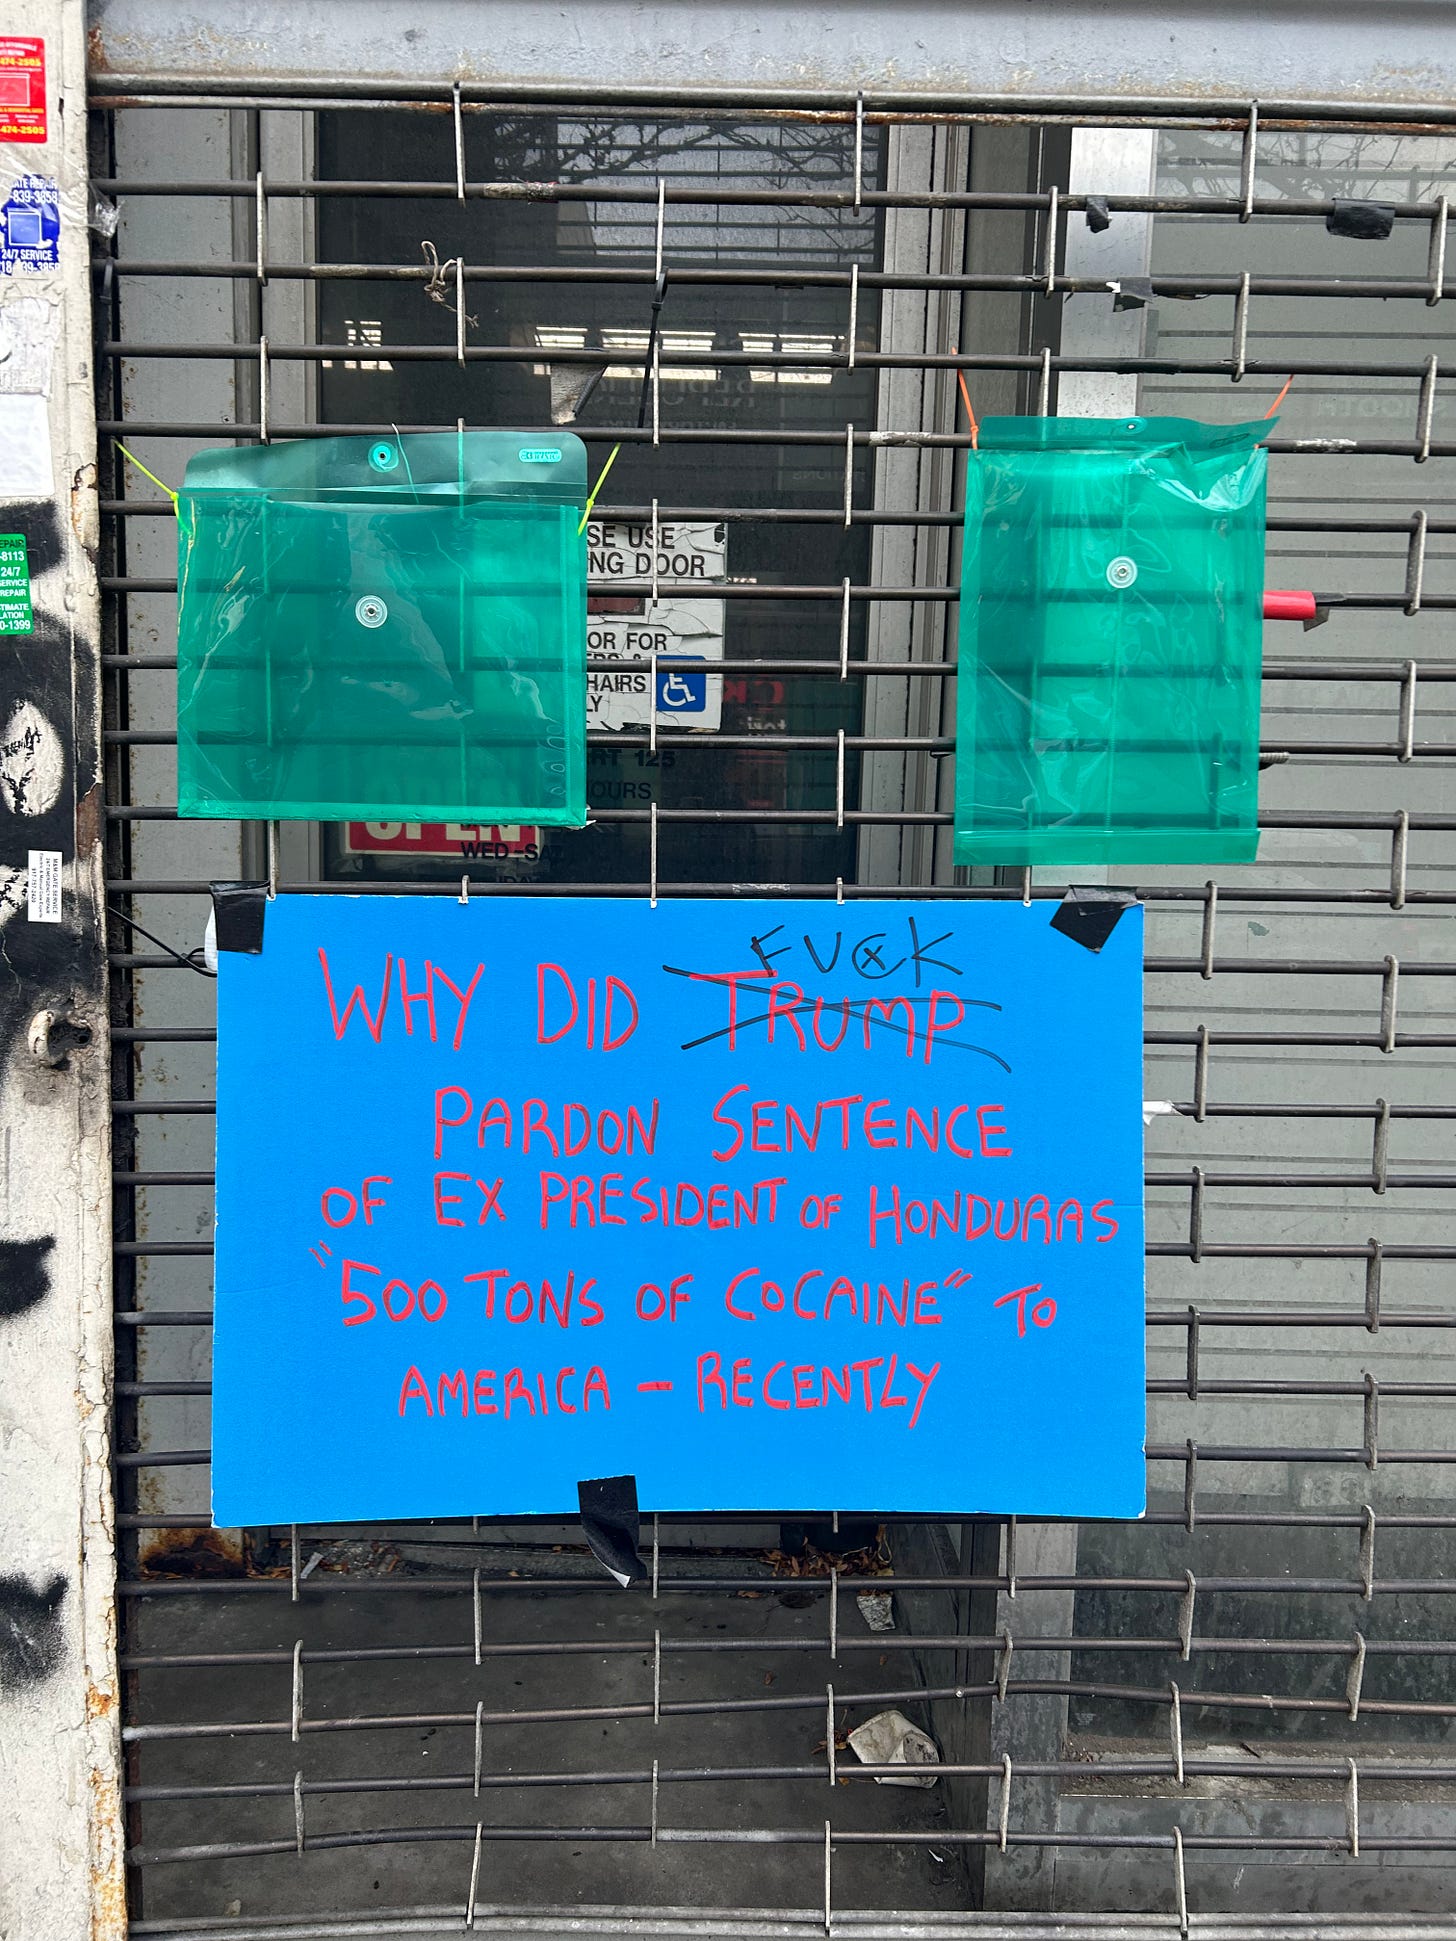 474-2505
474-2505
839-3858
24/7 SERVICE
REPAIR
-8113
24/7
SERVICE
REPAIR
0-1399
SE USE
NG DOOR
OR FOR
HAIRS
LY
RT 125
OURS
OPEN
WED-SAT
M&M GATE SERVICE
FUCK
WHY DID TRUMP
PARDON SENTENCE
OF EX PRESIDENT OF HONDURAS
"500 TONS OF COCAINE" TO
AMERICA - RECENTLY